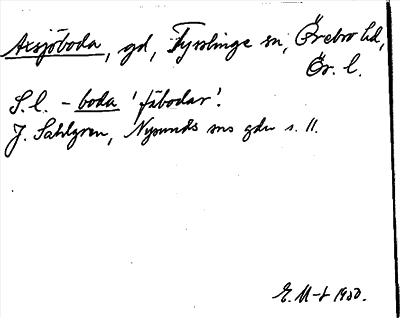 Axsjöboda, gd, Tysslinge sn, Örebro hd,
Ör. l.
S.l. - boda 'fäbodar'.
J. Sahlgren, Nysunds sns gdn s. 11.
E. M-t 1950.